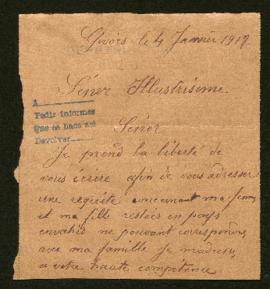 Givors le 4 Janvier 1917
Séñor Illustrisime.
A
Pedir informes
Que se haga así
Devolver
Séñor
Je prend la liberté de
vous écrire afin de vous adresser
une requête concernant ma femme
et ma fille restées en pays
envahis ne pouvant correspondre
avec ma famille je
a votre haute compétence